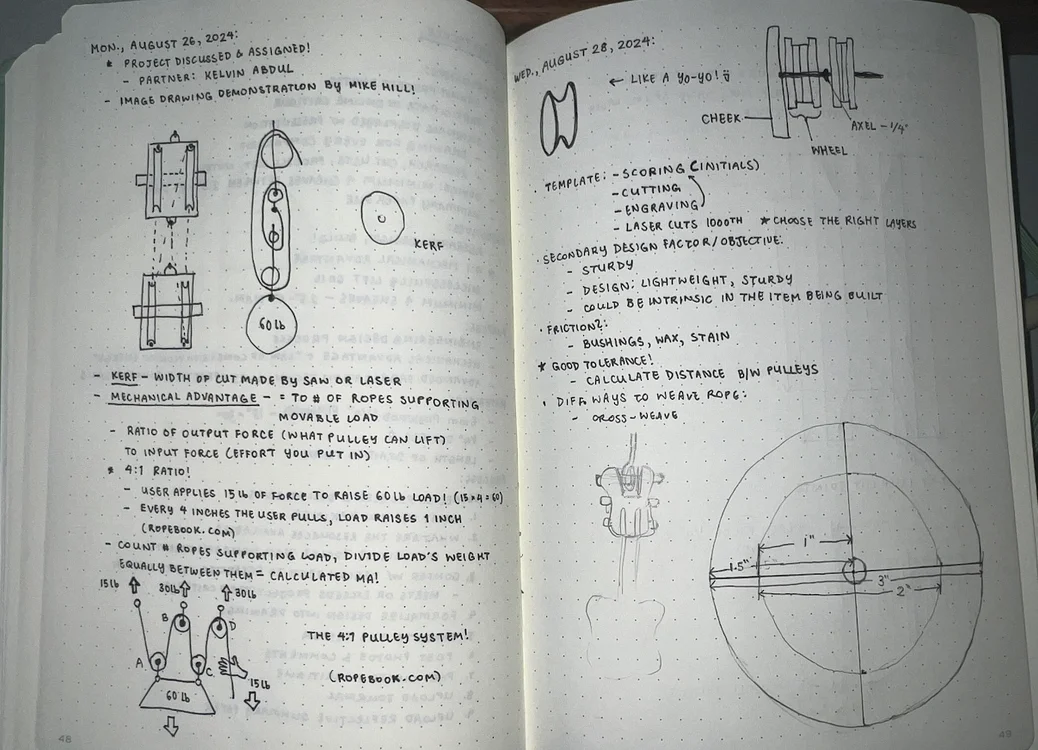 MON., AUGUST 26, 2024:
* PROJECT DISCUSSED & ASSIGNED!
- PARTNER: KELVIN ABDUL
- IMAGE DRAWING DEMONSTRATION BY MIKE HILL!
KERF
60 lb
- KERF - WIDTH OF CUT MADE BY SAW OR LASER
- MECHANICAL ADVANTAGE - = TO # OF ROPES SUPPORTING
MOVABLE LOAD
- RATIO OF OUTPUT FORCE (WHAT PULLEY CAN LIFT)
TO INPUT FORCE (EFFORT YOU PUT IN)
* 4:1 RATIO!
- USER APPLIES 15 lb OF FORCE TO RAISE 60 lb LOAD! (15 x 4 = 60)
- EVERY 4 INCHES THE USER PULLS, LOAD RAISES 1 INCH
(ROPEBOOK.COM)
- COUNT # ROPES SUPPORTING LOAD, DIVIDE LOAD'S WEIGHT
EQUALLY BETWEEN THEM = CALCULATED MA!
15 lb
30 lb
30 lb
B
D
A
C
15 lb
60 lb
THE 4:1 PULLEY SYSTEM!
(ROPEBOOK.COM)
48
WED., AUGUST 28, 2024:
← LIKE A YO-YO!
CHEEK
AXEL - 1/4"
WHEEL
· TEMPLATE: - SCORING (INITIALS)
- CUTTING
- ENGRAVING
- LASER CUTS 1000TH * CHOOSE THE RIGHT LAYERS
· SECONDARY DESIGN FACTOR/OBJECTIVE:
- STURDY
- DESIGN: LIGHTWEIGHT, STURDY
- COULD BE INTRINSIC IN THE ITEM BEING BUILT
· FRICTION?:
- BUSHINGS, WAX, STAIN
* GOOD TOLERANCE!
- CALCULATE DISTANCE B/W PULLEYS
· DIFF. WAYS TO WEAVE ROPE:
- CROSS-WEAVE
1"
1.5"
3"
2"
49